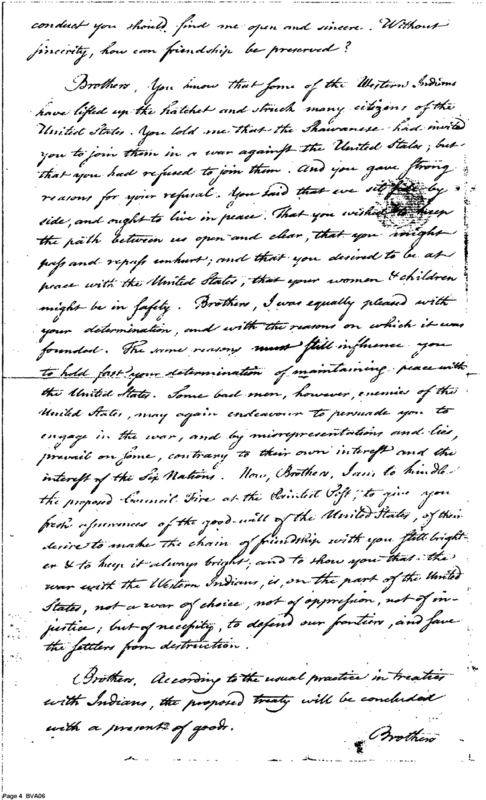 conduct you should find me open and sincere. Without
sincerity, how can friendship be preserved?
Brothers, You know that some of the Western Indians
have lifted up the hatchet and struck many citizens of the
United States. You told me that the Shawanese had invited
you to join them in a war against the United States; but
that you had refused to join them. And you gave strong
reasons for your refusal. You said that we sit side by
side, and ought to live in peace. That you wished to keep
the path between us open and clear, that you might
pass and repass unhurt; and that you desired to be at
peace with the United States; that your women & children
might be in safety. Brothers, I was equally pleased with
your determination, and with the reasons on which it was
founded. The same reasons must still influence you
to hold fast your determination of maintaining peace with
the United States. Some bad men, however, enemies of the
United States, may again endeavour to persuade you to
engage in the war, and by misrepresentations and lies,
prevail on some, contrary to their own interest and the
interest of the Six Nations. Now, Brothers, I am to kindle
the proposed Council Fire at the Painted Post; to give you
fresh assurances of the good-will of the United States, of their
desire to make the chain of friendship with you still bright-
er & to keep it always bright; and to show you that the
war with the Western Indians, is, on the part of the United
States, not a war of choice, not of oppression, not of in-
justice; but of necessity, to defend our frontiers, and save
the settlers from destruction.
Brothers, According to the usual practice in treaties
with Indians, the proposed treaty will be concluded
with a present of goods.
Brothers
Page 4 BVA06